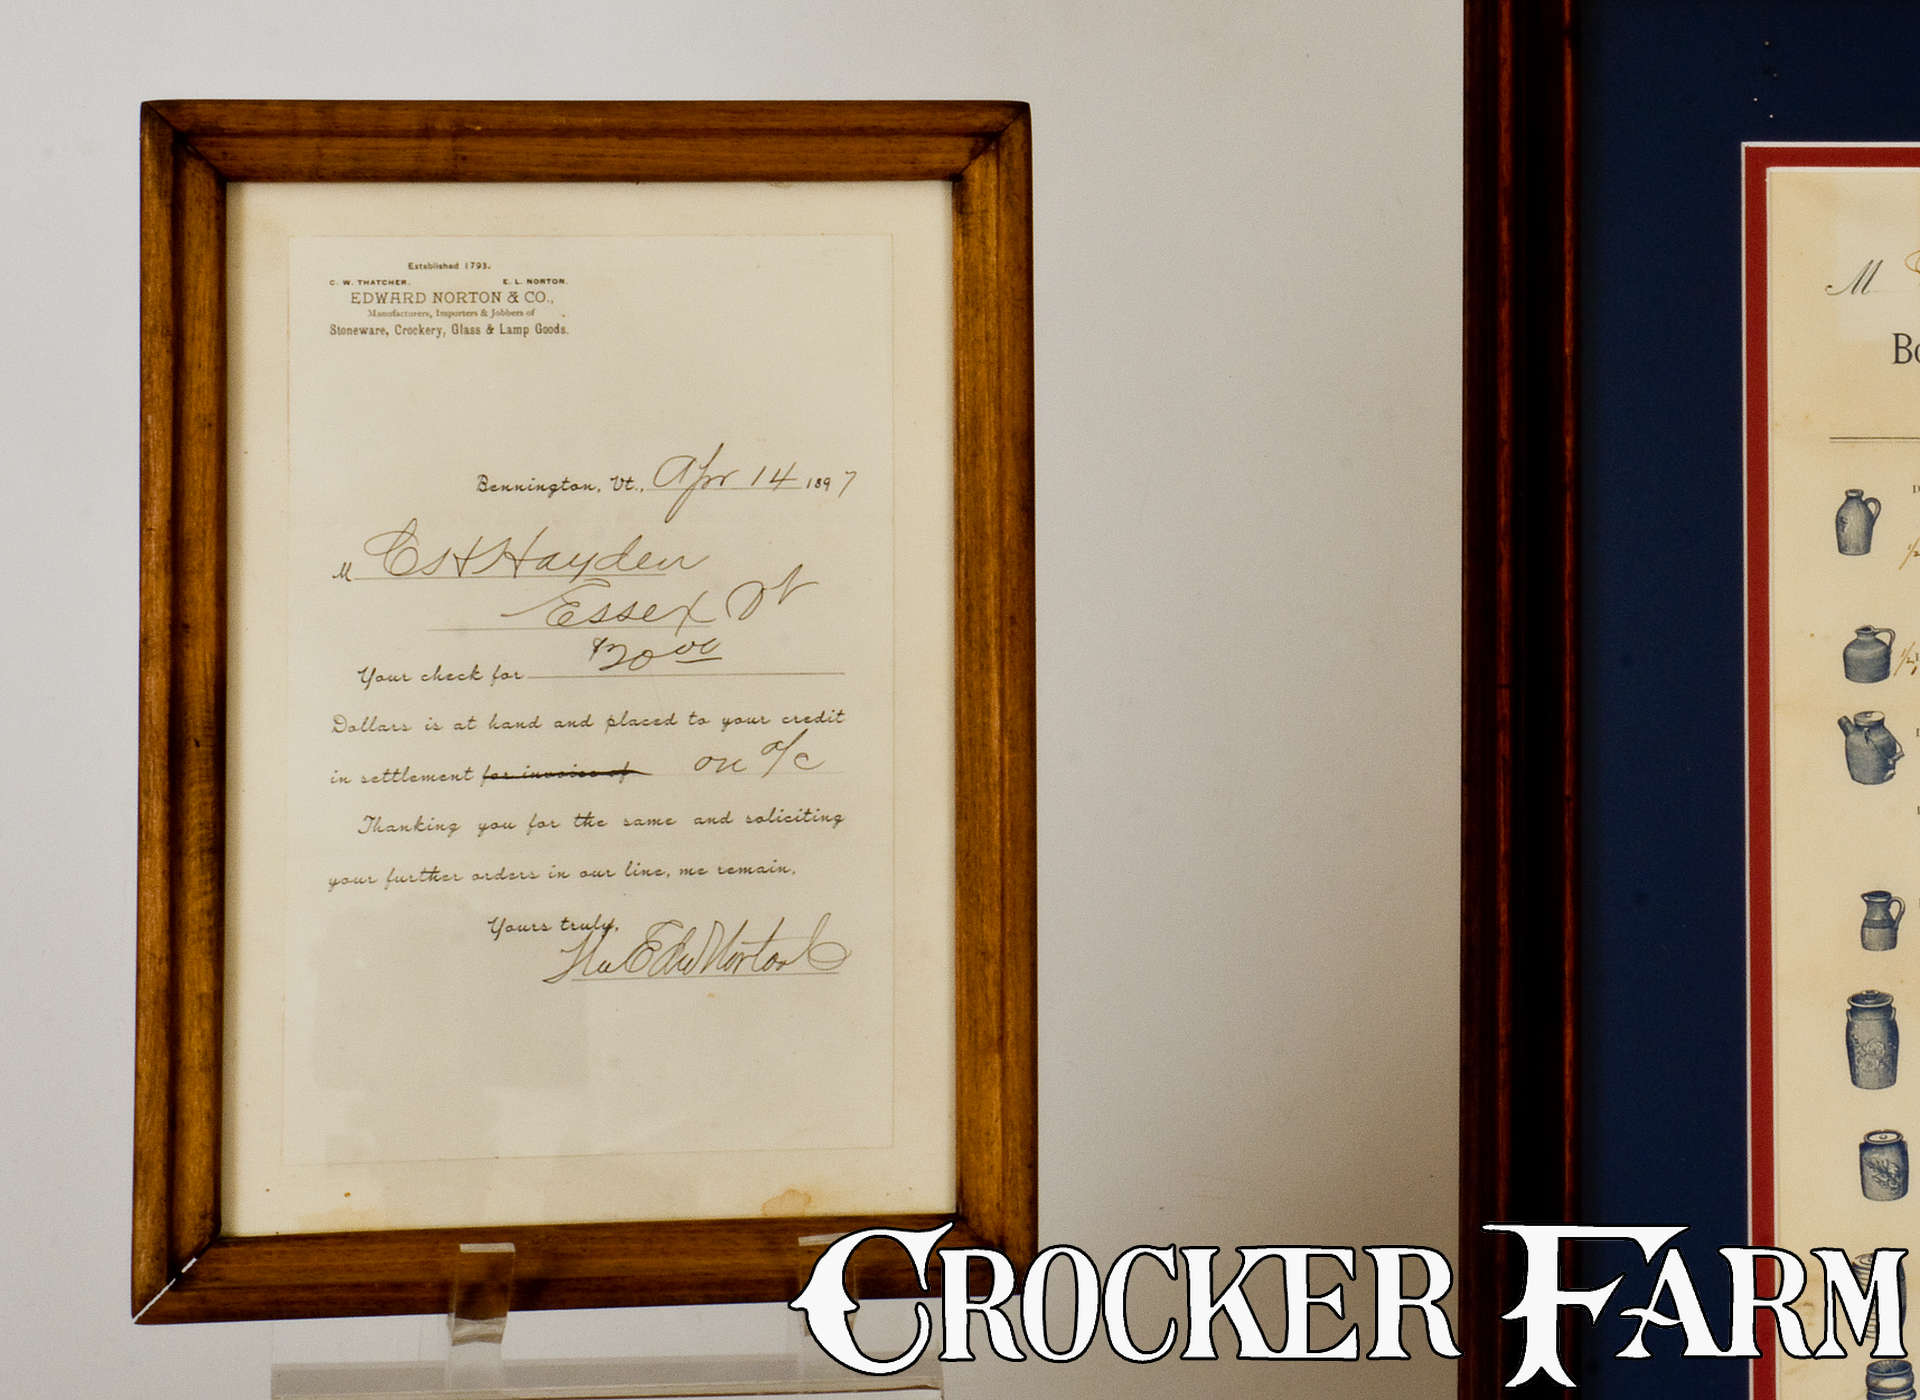 Established 1793.
C. W. THATCHER. E. L. NORTON.
EDWARD NORTON & CO.,
Manufacturers, Importers & Jobbers of
Stoneware, Crockery, Glass & Lamp Goods.
Bennington, Vt., Apr 14 1897
M C S H Hayden
Essex Vt
Your check for $20 00
Dollars is at hand and placed to your credit
in settlement for invoice of on a/c
Thanking you for the same and soliciting
your further orders in our line, we remain,
Yours truly,
The Edw Norton Co
M
Bo
CROCKER FARM